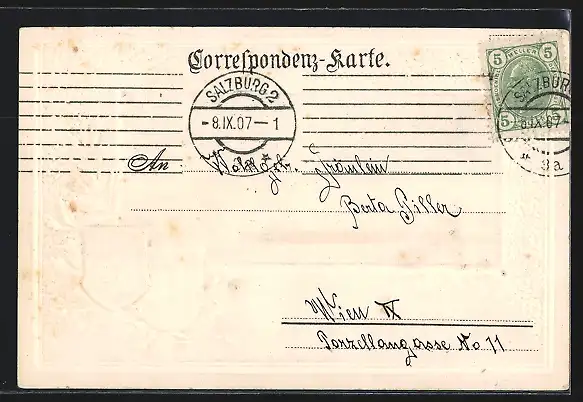 Correspondenz-Karte.
SALZBURG 2
- 8.IX.07 - 1
5 HELLER 5
5
SALZBURG
8.IX.07
* 9a
An Wohlgeb. Fräulein
Berta Piller
Wien IX
Porzellangasse No 11